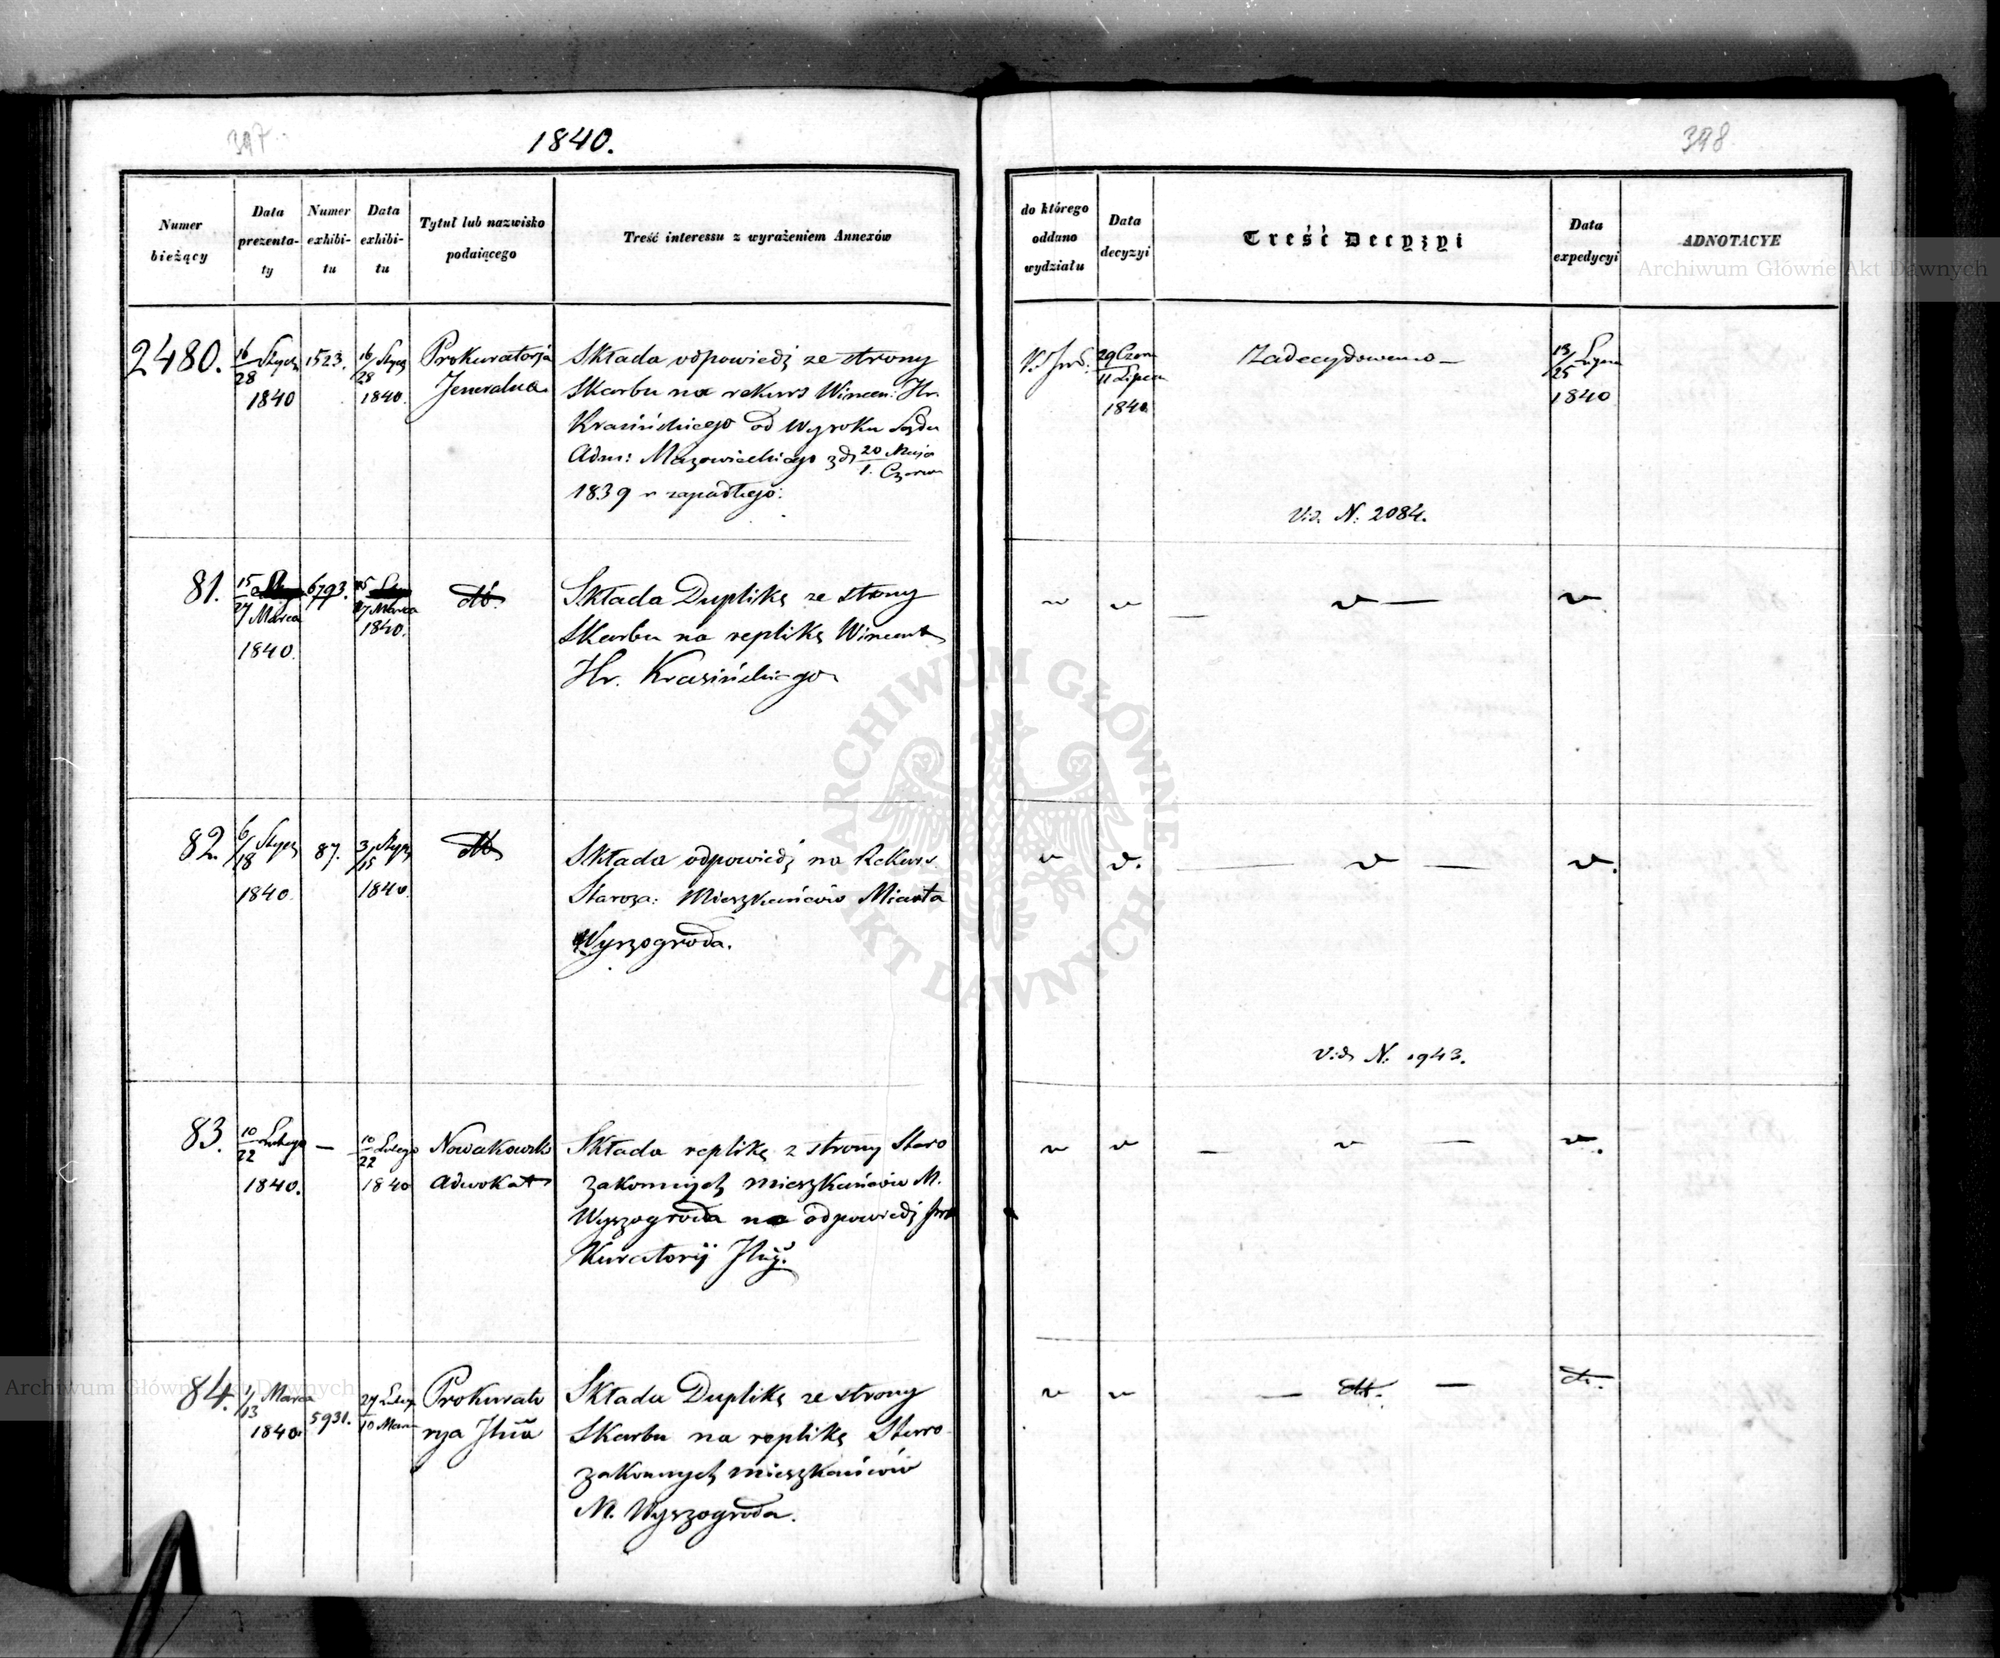 397
1840.
Numer bieżący
Data prezenta-ty
Numer exhibi-tu
Data exhibi-tu
Tytuł lub nazwisko podaiącego
Treść interessu z wyrażeniem Annexów
2480.
16/28 Stycz
1840
1523.
16/28 Stycz
1840.
Prokuratorja
Jeneralna
Składa odpowiedź ze strony
Skarbu na rekurs Wincen: Hr.
Krasińskiego od Wyroku Sądu
Adm: Mazowieckiego z d 20 Maja
1. Czerw
1839 r zapadłego.
81.
15/27 Marca
1840.
6793.
15/27 Marca
1840.
dto
Składa Duplikę ze strony
Skarbu na replikę Wincent
Hr. Krasińskiego
82.
6/18 Stycz
1840.
87.
3/15 Stycz
1840.
dto
Składa odpowiedź na Rekurs
Staroza: Mieszkańców Miasta
Wyszogroda.
83.
10/22 Lutego
1840.
—
10/22 Lutego
1840
Nowakowski
Adwokat
Składa replikę z strony Staro
zakonnych mieszkańców M.
Wyszogroda na odpowiedź Pro
Kuratorij
84.
1/13 Marca
1840.
5931.
27 Luteg
10 Marca
Prokurato
rya
Składa Duplikę ze strony
Skarbu na replikę Staro
zakonnych mieszkańców
M. Wyszogroda.
398
do którego oddano wydziału
Data decyzyi
Treść Decyzyi
Data expedycyi
ADNOTACYE
29 Czer
11 Lipca
1840
Zadecydowano —
13/25 Lipca
1840
Vid. N: 2084.
Vid N. 1943.
dto.
Archiwum Główne Akt Dawnych
ARCHIWUM GŁÓWNE AKT DAWNYCH
Archiwum Główne Akt Dawnych